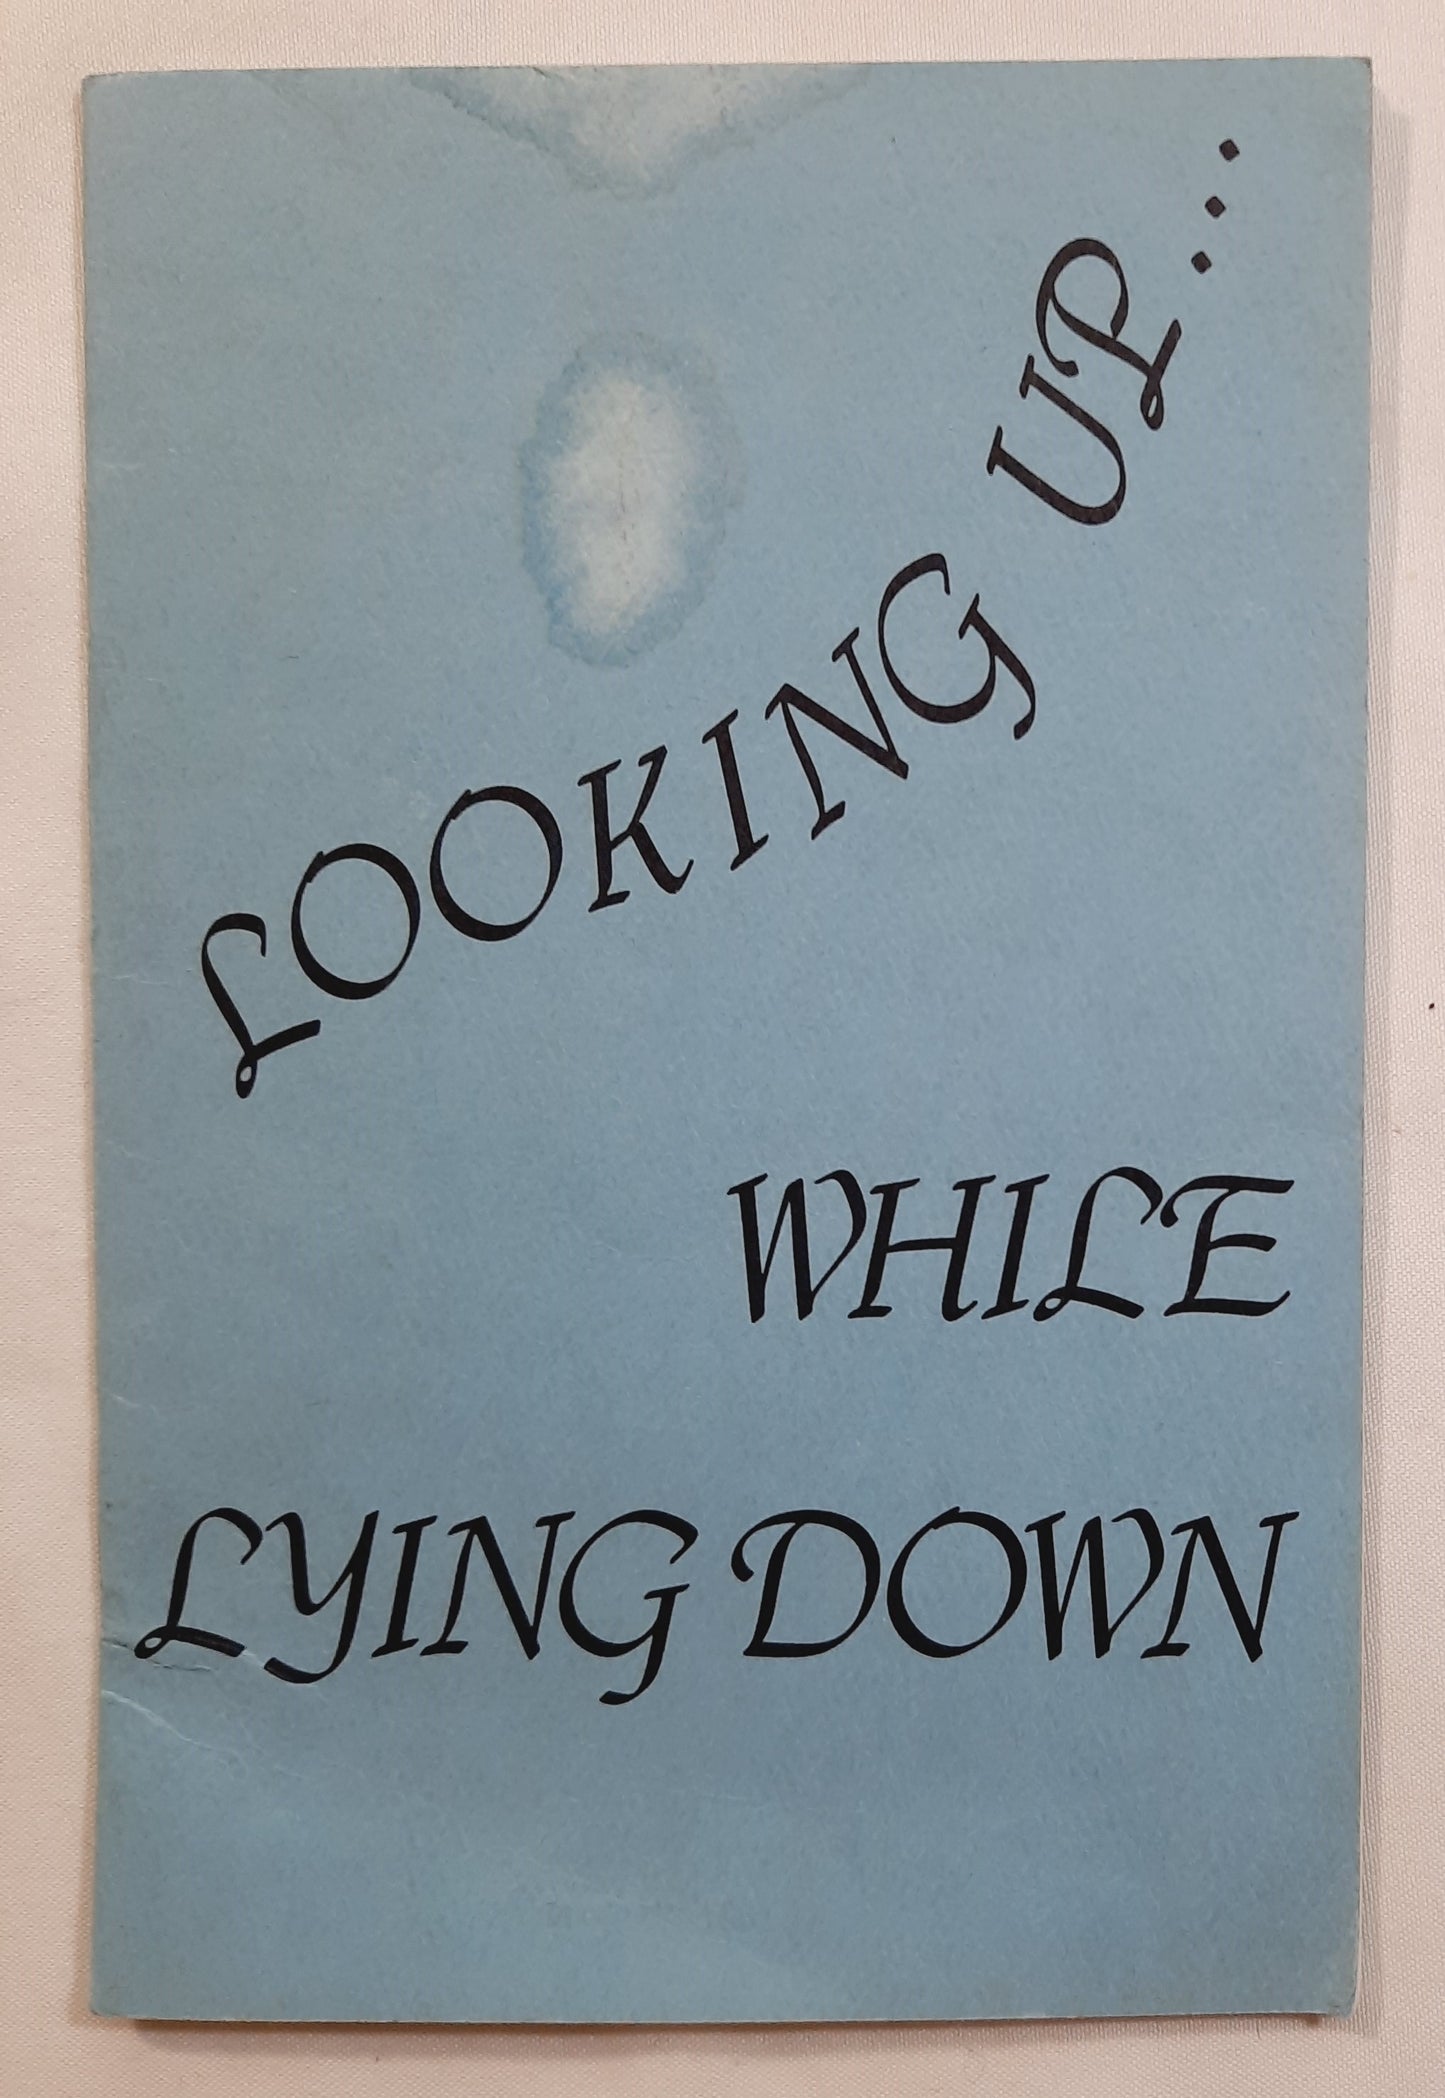 LOOKING UP...
WHILE
LYING DOWN